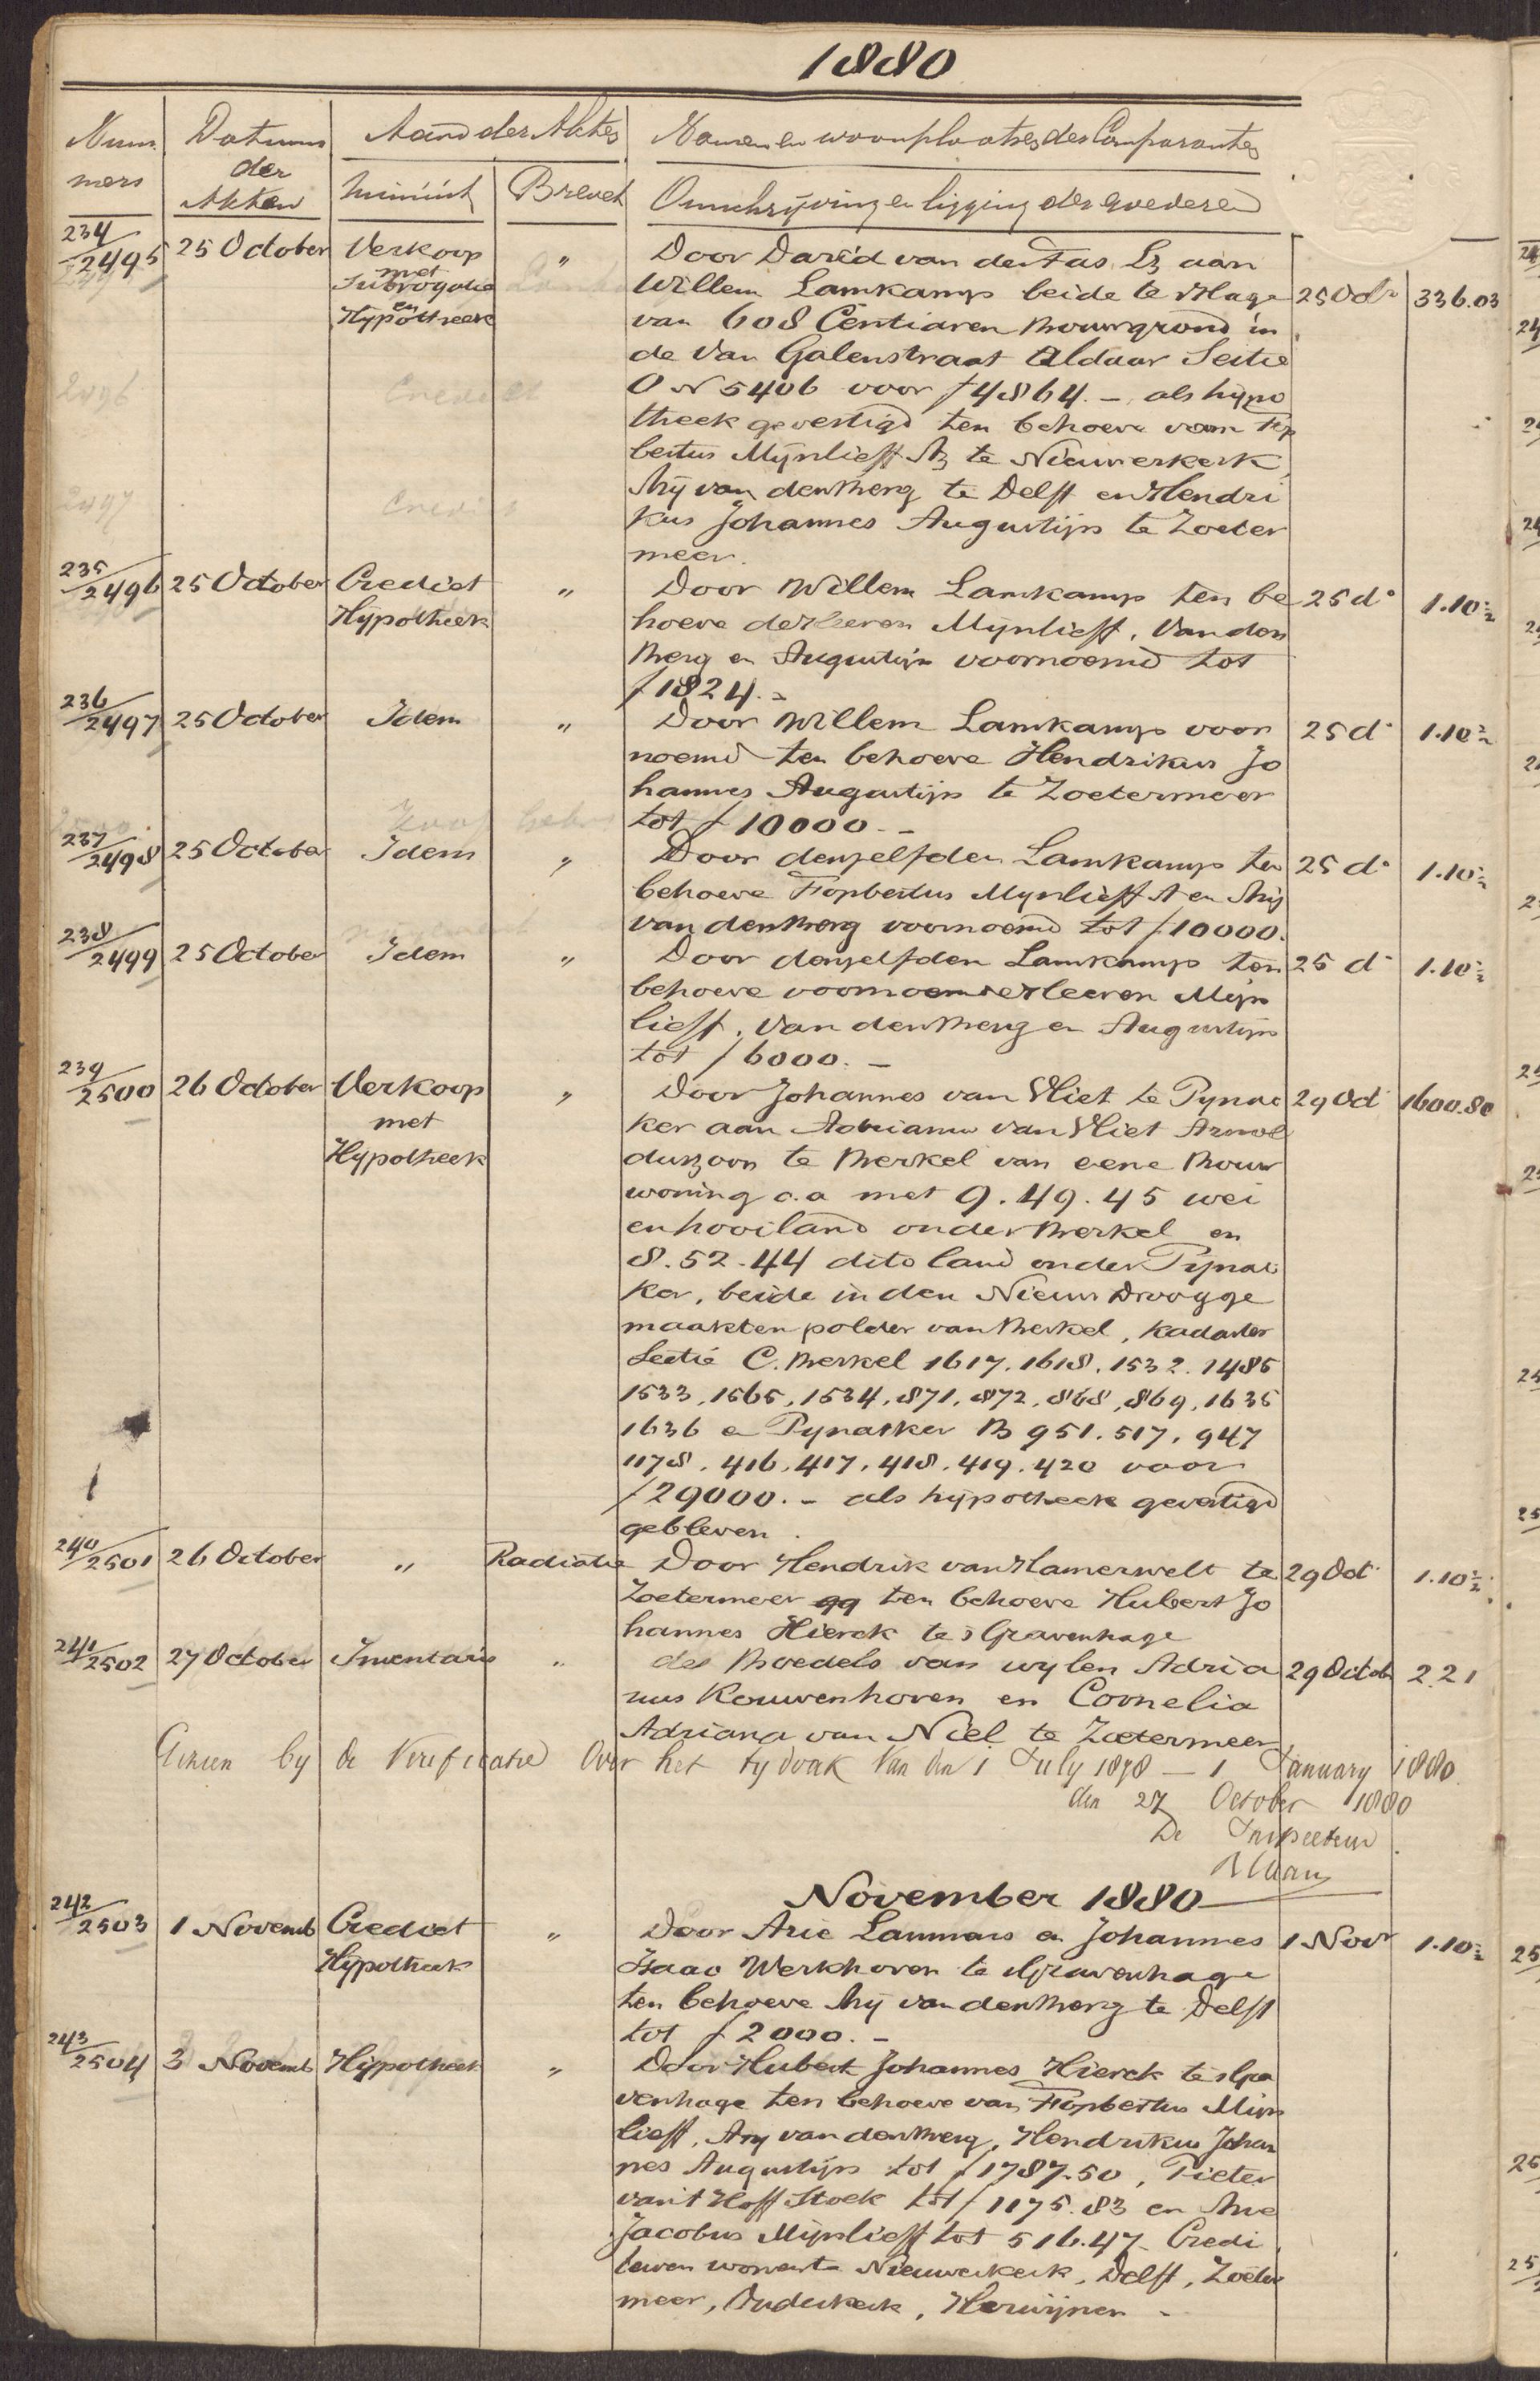 1880
Num Datums Aard der Akten Namen en woonplaatsen der Comparanten
mers der Minuut Brevet Omschrijving en ligging der goederen
Akten
234/2495 25 October Verkoop " Door David van der Tas Lz aan
met Subrogatie Willem Lamkamp beide te Hage 25 Octr 336.03
en Hypotheek van 608 Centiaren Bouwgrond in
de Van Galenstraat Aldaar Sectie
O N 5406 voor f 4864.- als hypo
2496 Crediet
theek gevestigd ten behoeve van Fop
bertus Mijnlieff Az te Nieuwerkerk,
Arij van den Berg te Delft en Hendri
2497 Crediet
kus Johannes Augustijn te Zoeter
meer.
235/2496 25 October Crediet " Door Willem Lamkamp ten be 25 do 1.10½
Hypotheek hoeve der Heeren Mijnlieff, Van den
Berg en Augustijn voornoemd tot
f 1824.-
236/2497 25 October Idem " Door Willem Lamkamp voor 25 do 1.10½
noemd ten behoeve Hendrikus Jo
hannes Augustijn te Zoetermeer
tot f 10000.-
237/2498 25 October Idem " Door denzelfden Lamkamp ten 25 do 1.10½
behoeve Fopbertus Mijnlieff A en Arij
van den Berg voornoemd tot f 10000.
238/2499 25 October Idem " Door denzelfden Lamkamp ten 25 do 1.10½
behoeve voornoemde Heeren Mijn
lieff, Van den Berg en Augustijn
tot f 6000.-
239/2500 26 October Verkoop " Door Johannes van Vliet te Pynac 29 Oct 1600.80
met ker aan Adrianus van Vliet Arnol
Hypotheek duszoon te Berkel van eene Bouw
woning c.a met 9.49.45 wei
en hooiland onder Berkel en
8.52.44 dito land onder Pijnac
ker, beide in den Nieuw Droogge
maakten polder van Berkel, Kadaster
Sectie C. Berkel 1617. 1618. 1532. 1485
1533, 1565, 1534, 871, 872, 868, 869, 1635
1636 en Pynacker B 951. 517, 947
1178. 416, 417, 418. 419. 420 voor
f 29000.- als hypotheek gevestigd
gebleven.
240/2501 26 October " Radiatie Door Hendrik van Hamerwelt te 29 Oct 1.10½
Zoetermeer qq ten behoeve Hubert Jo
hannes Hierck te sGravenhage
241/2502 27 October Inventaris " des Boedels van wylen Adria 29 Octob 2.21
nus Kouwenhoven en Cornelia
Adriana van Niel te Zoetermeer
Gezien by de Verificatie Over het tydvak Van den 1 July 1878 — 1 January 1880
den 27 October 1880
De Inspecteur
November 1880
242/2503 1 Novemb Crediet " Door Arie Lammars en Johannes 1 Novr 1.10½
Hypotheek Isaac Werkhoven te sGravenhage
ten behoeve Arij van den Berg te Delft
tot f 2000.-
243/2504 3 Novemb Hypotheek " Door Hubert Johannes Hierck te sGra
venhage ten behoeve van Fopbertus Mijn
lieff, Ary van den Berg, Hendrikus Johan
nes Augustijn tot f 1787.50, Pieter
van 't Hoff Stoek tot f 1175.83 en Arie
Jacobus Mijnlieff tot 516.47 Credi
teuren wonende Nieuwerkerk, Delft, Zoeter
meer, Ouderkerk, Herwijnen -